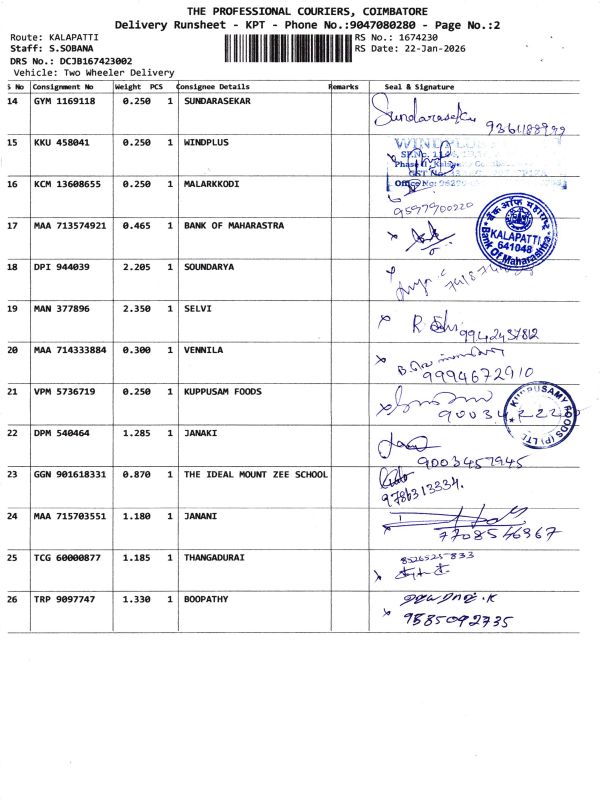 THE PROFESSIONAL COURIERS, COIMBATORE
Delivery Runsheet - KPT - Phone No.:9047080280 - Page No.:2
Route: KALAPATTI RS No.: 1674230
Staff: S.SOBANA RS Date: 22-Jan-2026
DRS No.: DCJB167423002
Vehicle: Two Wheeler Delivery
S No Consignment No Weight PCS Consignee Details Remarks Seal & Signature
14 GYM 1169118 0.250 1 SUNDARASEKAR Sundarasekar
9361188999
15 KKU 458041 0.250 1 WINDPLUS WINDPLUS
16 KCM 13608655 0.250 1 MALARKKODI
9597900220
17 MAA 713574921 0.465 1 BANK OF MAHARASTRA
बैंक ऑफ महाराष्ट्र
KALAPATTI
641048
Bank Of Maharashtra
18 DPI 944039 2.205 1 SOUNDARYA
19 MAN 377896 2.350 1 SELVI
9942437812
20 MAA 714333884 0.300 1 VENNILA
9994672910
21 VPM 5736719 0.250 1 KUPPUSAM FOODS
KUPPUSAMY FOODS (P) LTD
22 DPM 540464 1.285 1 JANAKI
9003457945
23 GGN 901618331 0.870 1 THE IDEAL MOUNT ZEE SCHOOL
9786313334.
24 MAA 715703551 1.180 1 JANANI
7708546967
25 TCG 60000877 1.185 1 THANGADURAI 8526525833
26 TRP 9097747 1.330 1 BOOPATHY
9585092735